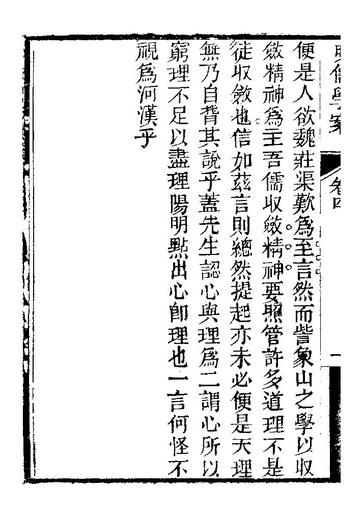 明儒學案
卷四
一
便是人欲魏莊渠歎爲至言然而訾象山之學以收
斂精神爲主吾儒收斂精神要照管許多道理不是
徒收斂也信如茲言則總然提起亦未必便是天理
無乃自背其說乎蓋先生認心與理爲二謂心所以
窮理不足以盡理陽明點出心卽理也一言何怪不
視爲河漢乎